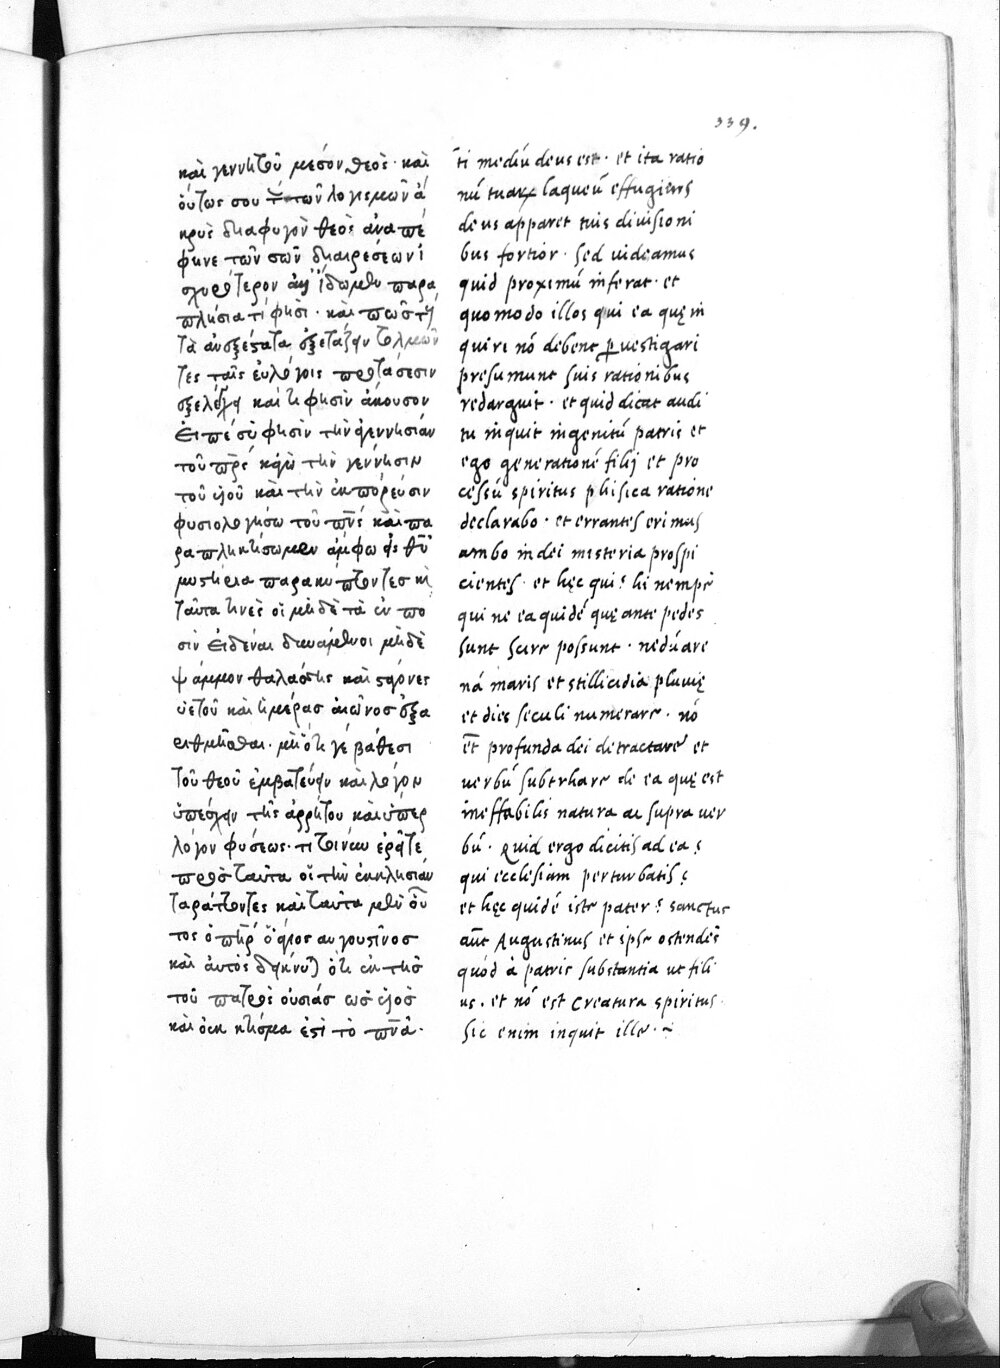 339.
καὶ γεννητοῦ μέσον θεὸς· καὶ
οὕτως σου τῶν λογισμῶν ἄ
κρυς διαφυγὸν θεὸς ἀναπέ
φηνε τῶν σῶν διαιρέσεων ἰ
σχυρότερον ἀλλ' ἴδωμεν παρα
πλήσια τί φησὶ· καὶ πῶς τῇ
τὰ ἀνεξέταστα ἐξετάζειν τολμῶν
τες ταῖς εὐλόγοις προτάσεσιν
ἐξελέγχει καὶ τί φησὶν ἄκουσον
εἰπέ σὺ φησὶν τὴν ἀγεννησίαν
τοῦ πρς κἀγὼ τὴν γέννησιν
τοῦ υἱοῦ καὶ τὴν ἐκπόρευσιν
φυσιολογήσω τοῦ πνς καὶ πα
ραπληκτήσωμεν ἄμφω εἰς θῦ
μυστήρια παρακύπτοντες κὶ
ταῦτα τίνες οἱ μηδὲ τὰ ἐν πο
σὶν εἰδέναι δυνάμενοι μηδὲ
ψάμμον θαλάσσης καὶ σαγόνες
ὑετοῦ καὶ ἡμέρας αἰῶνος ἐξα
ριθμῆσθαι· μὴ ὅτι γε βάθεσι
τοῦ θεοῦ ἐμβατεύειν καὶ λόγον
ὑπέσχειν τῆς ἀρρήτου καὶ ὑπὲρ
λόγον φύσεως· τί τοίνυν ἐρεῖτε
πρὸς ταῦτα οἱ τὴν ἐκκλησίαν
ταράττοντες καὶ ταῦτα μὲν οὗ
τος ὁ πῆρ ὁ ἅγιος αὐγουστῖνος
καὶ αὐτὸς δεικνύει ὅτι ἐκ τῆς
τοῦ πατρὸς οὐσίας ὡς υἱὸς
καὶ οὐκ κτίσμα ἐστὶ τὸ πνα·
ti mediū deus est· et ita ratio
nū tuarx laqueū effugiens
deus apparet tuis diuisioni
bus fortior· sed uideamus
quid proximū inferat· et
quomodo illos qui ea quę in
quiri nō debent ꝑuestigari
presumunt suis rationibus
redarguit· et quid dicat audi
tu inquit ingenitū patris et
ego generationē filij et pro
cessū spiritus phisica ratione
declarabo· et errantes erimus
ambo in dei misteria prospi
cientes· et hęc qui? hi nempe
qui ne ea quidē quę ante pedes
sunt scire possunt· nedū are
nā maris et stillicidia pluuię
et dies seculi numerare· nō
et profunda dei detractare et
uerbū subtrhare de ea quę est
ineffabilis natura ac supra uer
bū· quid ergo dicitis ad ea?
qui ecclesiam perturbatis?
et hęc quidē iste pater? sanctus
aut Augustinus et ipse ostendēs
quod à patris substantia ut fili
us· et nō est creatura spiritus·
sic enim inquit ille·~